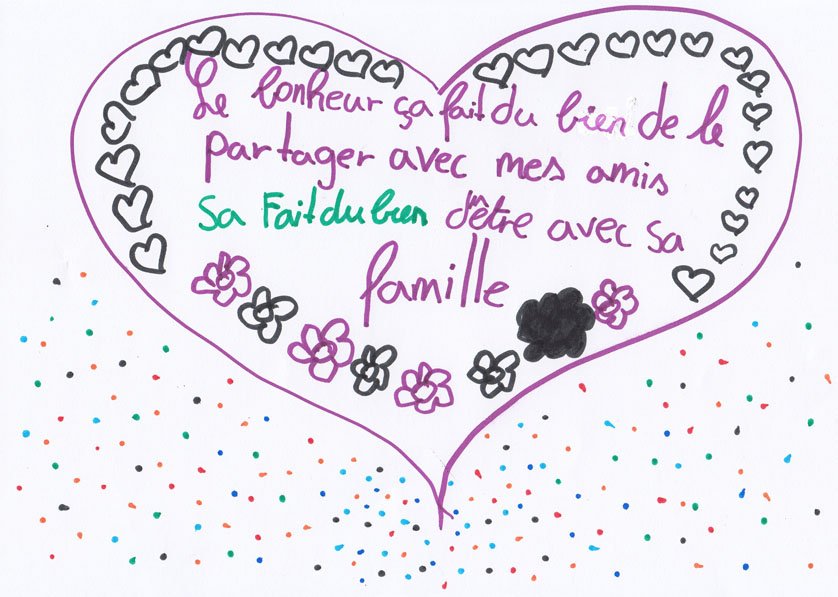 Le bonheur ça fait du bien de le
partager avec mes amis
Sa Fait du bien d'être avec sa
famille